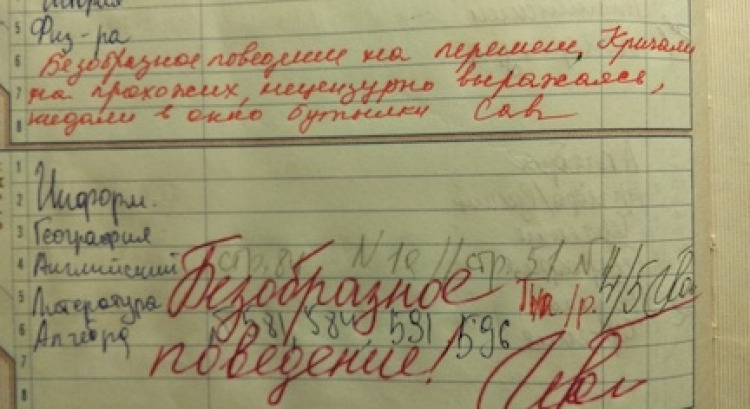 Физ-ра
Безобразное поведение на перемене, Кричали
на прохожих, нецензурно выражаясь,
кидали в окно бутылки Сав
Информ.
География
Английский стр. 8 N 1а // стр. 51 N
Безобразное 4/5
Литература
Алгебра 581, 584, 591, 596
поведение!